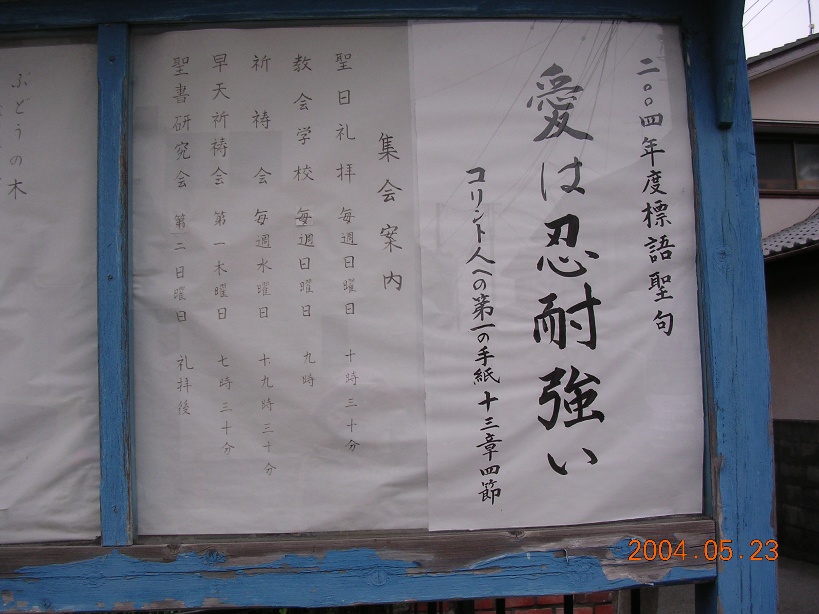 二〇〇四年度標語聖句
愛は忍耐強い
コリント人への第一の手紙 十三章四節
集会案内
聖日礼拝 毎週日曜日 十時三十分
教会学校 毎週日曜日 九時
祈祷会 毎週水曜日 十九時三十分
早天祈祷会 第一木曜日 七時三十分
聖書研究会 第二日曜日 礼拝後
ぶどうの木
2004.05.23